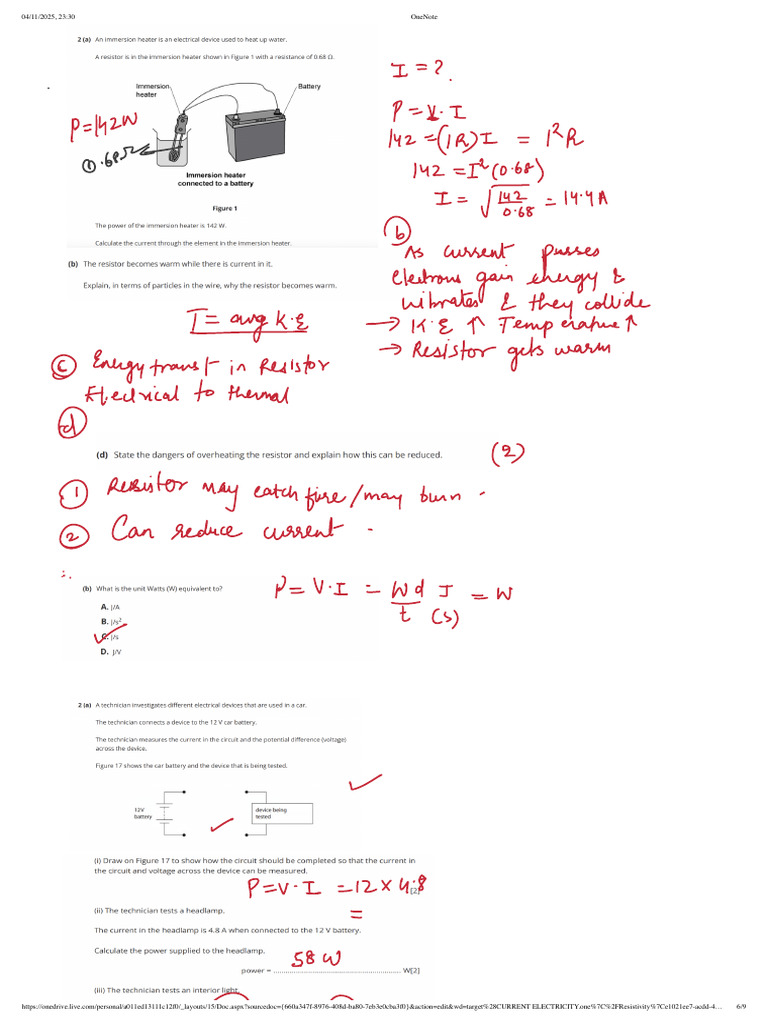 04/11/2025, 23:30
OneNote
2 (a) An immersion heater is an electrical device used to heat up water.
A resistor is in the immersion heater shown in Figure 1 with a resistance of 0.68 Ω.
I = ?.
Immersion heater
Battery
P=142W
0.68Ω
P = V·I
142 = (IR)I = I²R
142 = I²(0.68)
I = √142/0.68 = 14.4A
Immersion heater
connected to a battery
Figure 1
The power of the immersion heater is 142 W.
Calculate the current through the element in the immersion heater.
(b) The resistor becomes warm while there is current in it.
Explain, in terms of particles in the wire, why the resistor becomes warm.
(b)
As current passes
electrons gain energy &
vibrates & they collide
→ K.E ↑ Temperature ↑
→ Resistor gets warm
T = avg K.E
(c) Energy transf in Resistor
Electrical to thermal
(d)
(d) State the dangers of overheating the resistor and explain how this can be reduced.
(2)
(1) Resistor may catch fire/may burn.
(2) Can reduce current.
∴
(b) What is the unit Watts (W) equivalent to?
P = V·I = Wd/t J/(s) = W
A. J/A
B. J/s²
C. J/s
D. J/V
2 (a) A technician investigates different electrical devices that are used in a car.
The technician connects a device to the 12 V car battery.
The technician measures the current in the circuit and the potential difference (voltage)
across the device.
Figure 17 shows the car battery and the device that is being tested.
12V
battery
device being
tested
(i) Draw on Figure 17 to show how the circuit should be completed so that the current in
the circuit and voltage across the device can be measured.
[2]
P=V·I = 12 × 4.8
=
(ii) The technician tests a headlamp.
The current in the headlamp is 4.8 A when connected to the 12 V battery.
Calculate the power supplied to the headlamp.
58 W
power = ................................................................ W[2]
(iii) The technician tests an interior light.
6/9